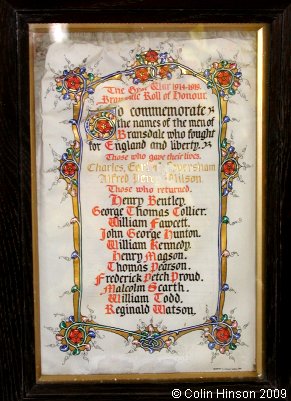 The Great War 1914-1918.
Bransdale Roll of Honour.
To commemorate
the names of the men of
Bransdale who fought
for England and liberty.
Those who gave their lives.
Charles, Earl of Feversham
Alfred Wilson.
Those who returned.
Henry Bentley.
George Thomas Collier.
William Fawcett.
John George Hunton.
William Kennedy.
Henry Magson.
Thomas Pearson.
Frederick Petch Proud.
Malcolm Scarth.
William Todd.
Reginald Watson.
© Colin Hinson 2009